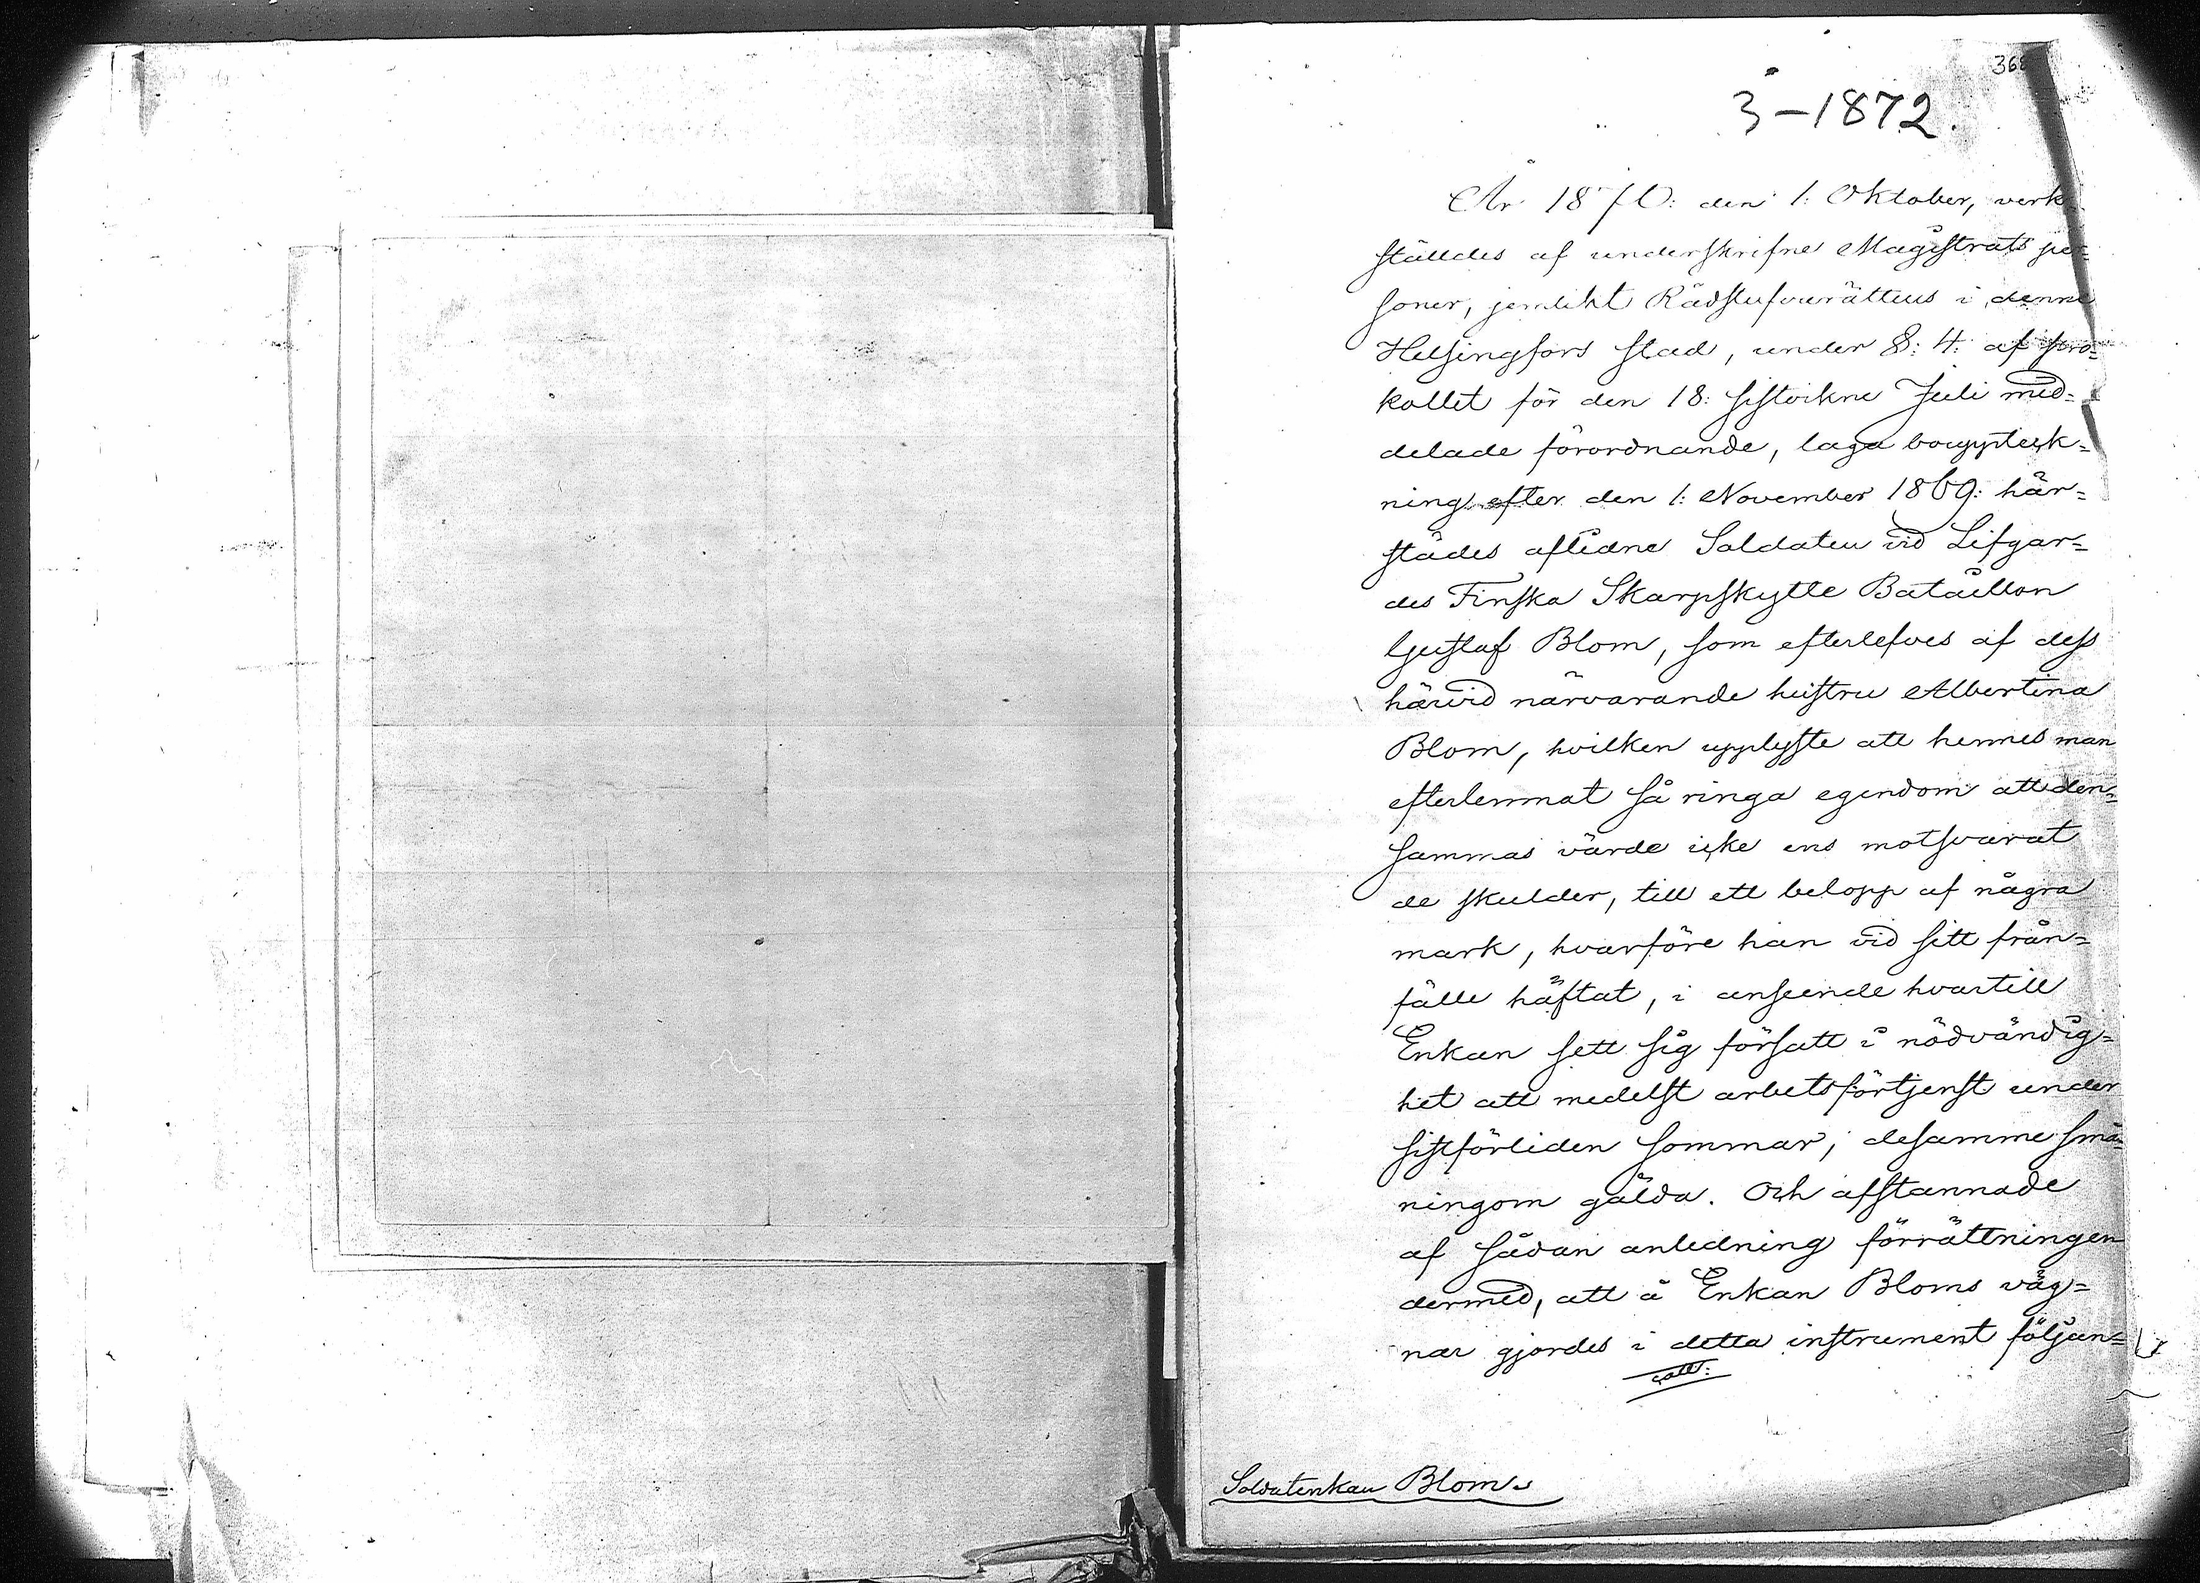 368
3-1872.
År 1870: den 1: Oktober, verk-
ställdes af underskrifne Magistrats per=
soner, jemlikt Rådstufvurättens i denne
Helsingfors stad, under §: 4: af pro=
kollet för den 18: sistvikne Juli med=
delade förordnande, laga bouppteck=
ning efter den 1: November 1869: här=
städes aflidne Soldaten vid Lifgar=
des Finska Skarpskytte Bataillon
Gustaf Blom, som efterlefves af dess
härvid närvarande hustru Albertina
Blom, hvilken upplyste att hennes man
efterlemnat så ringa egendom att den=
sammas värde icke ens motsvarat
de skulder, till ett belopp af några
mark, hvarföre han vid sitt från=
fälle häftat, i anseende hvartill
Enkan sett sig försatt i nödvändig=
het att medelst arbetsförtjenst under
sistförliden sommar, desamme små=
ningom gälda. Och afstannade
af sådan anledning förrättningen
dermed, att å Enkan Bloms väg=
nar gjordes i detta instrument följan=
Soldatenkan Blom